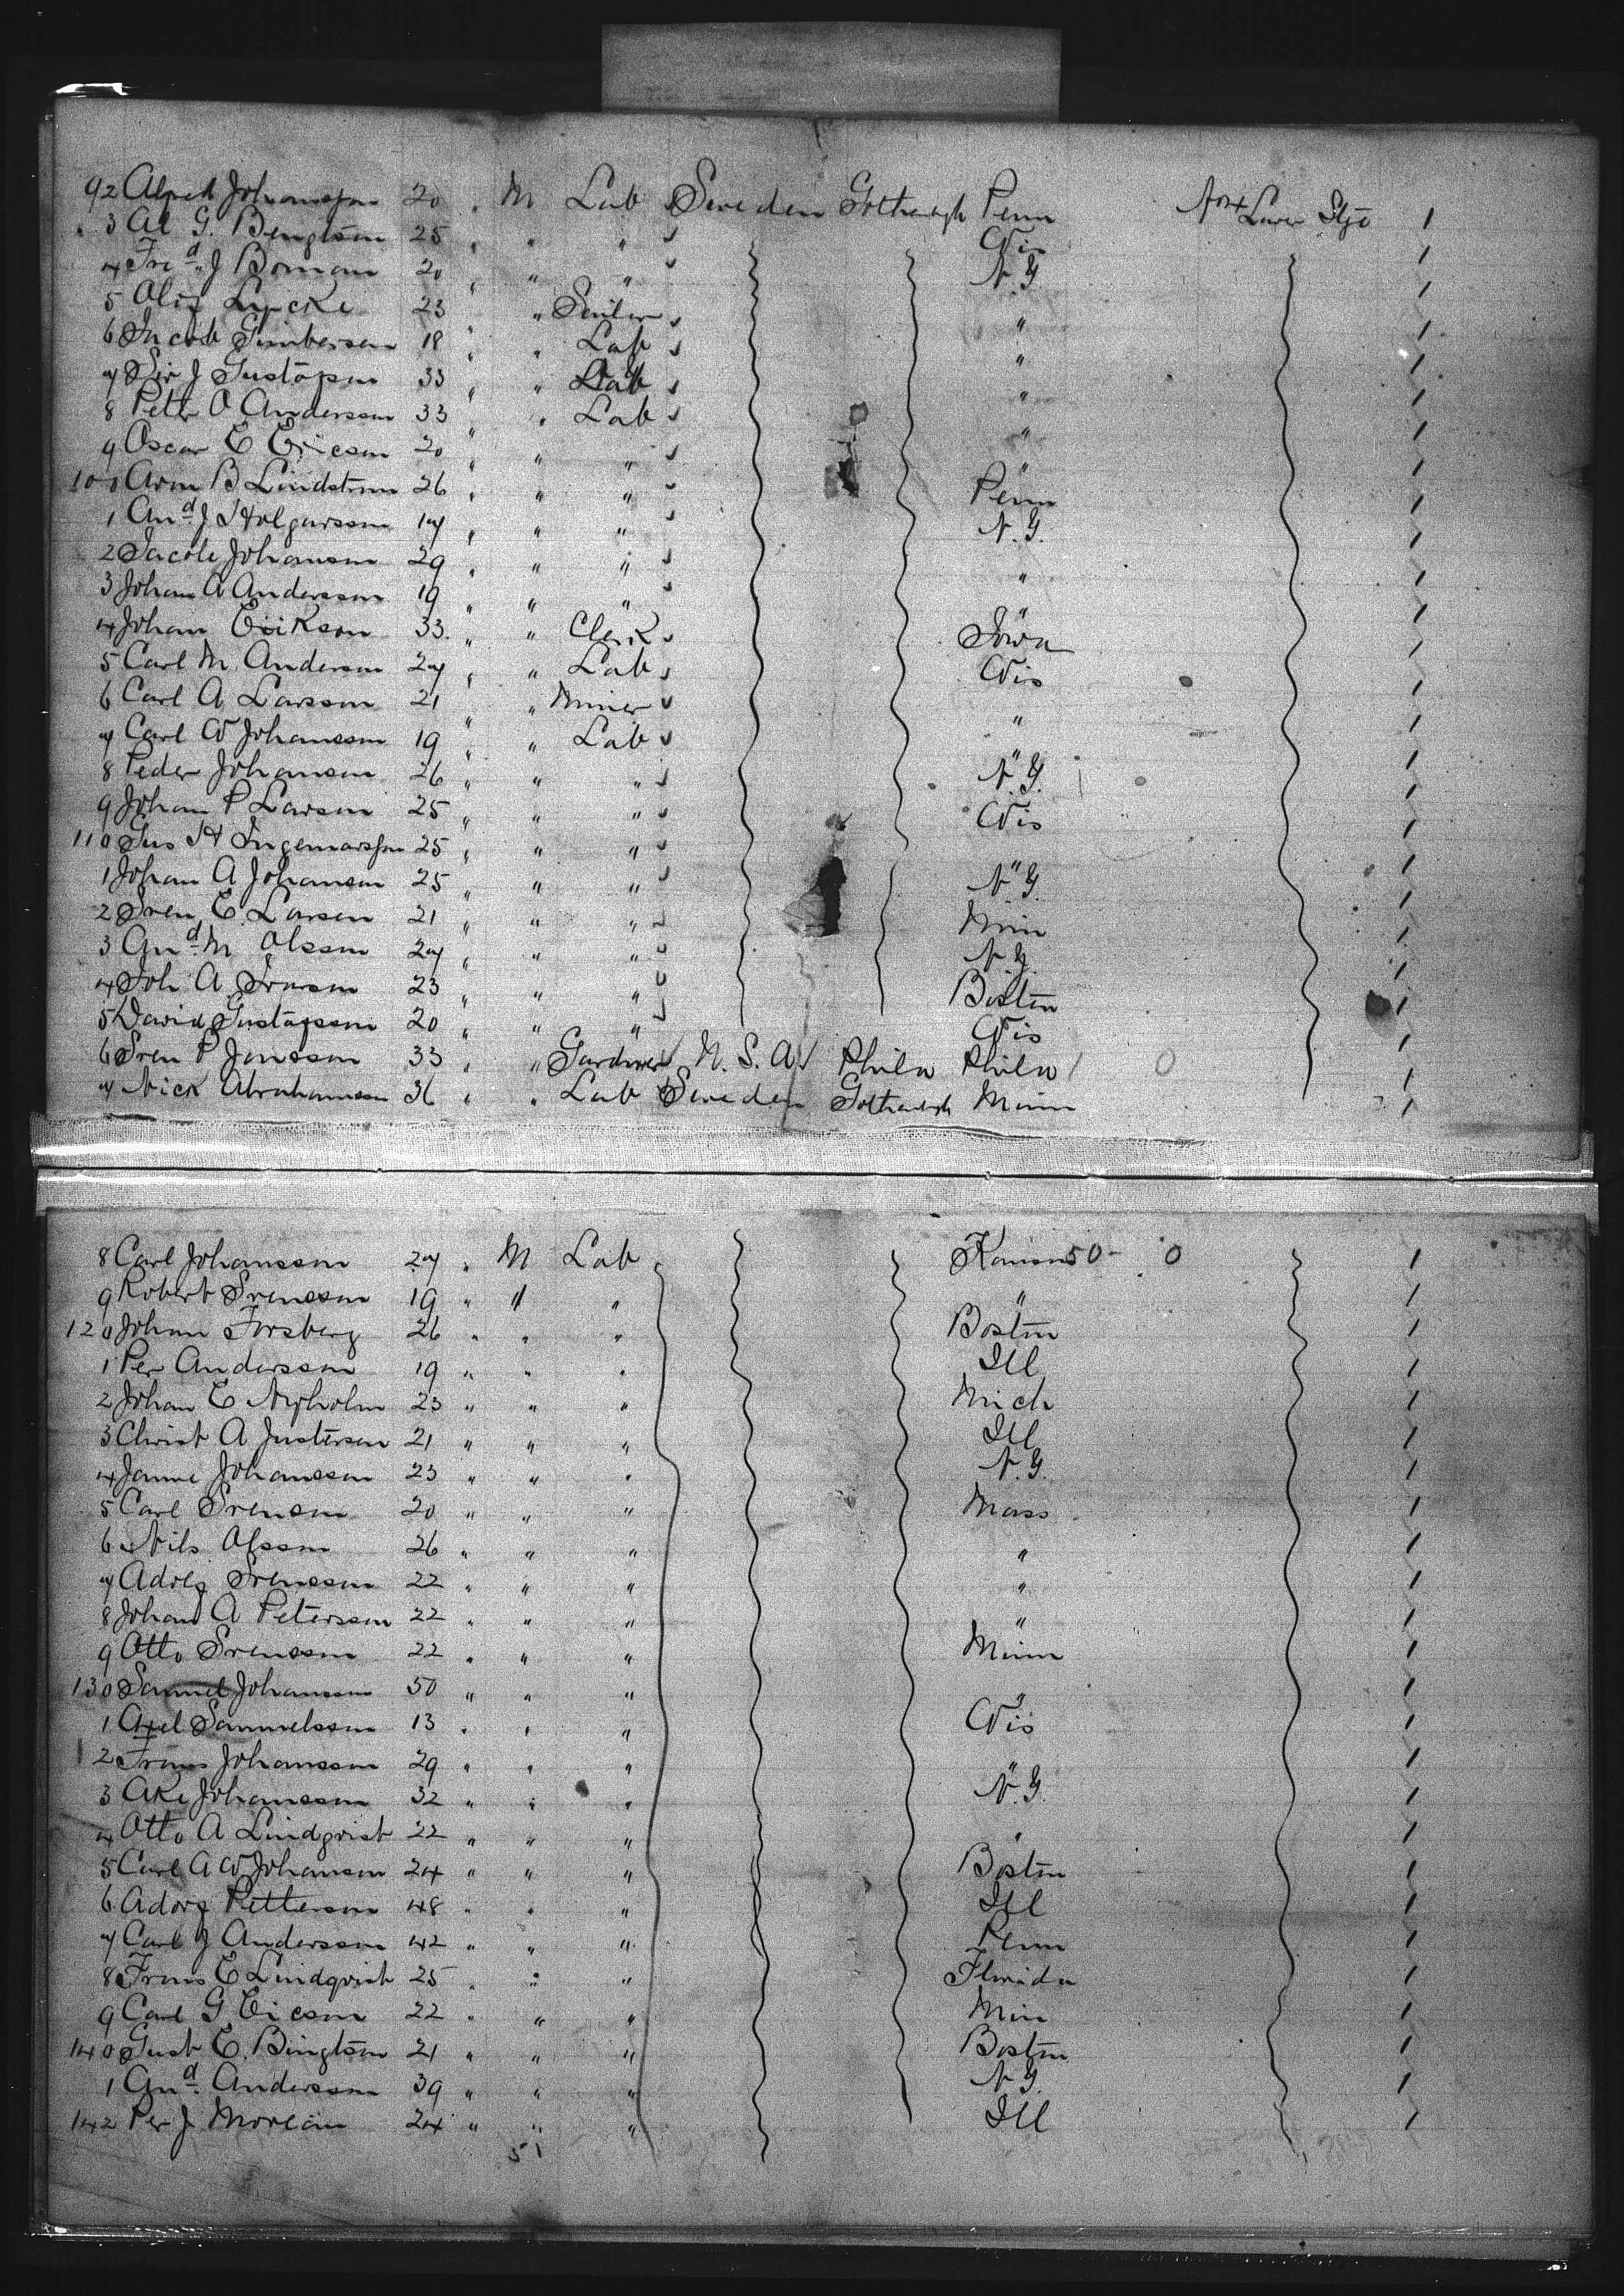 92 Alfred Johansson 20 " M Lab Sweden Gothenbgh Penn Nox Lower Stge 1
3 Al G. Bengtson 25 " " " Wis 1
4 Fred J Boman 20 " " " N.Y. 1
5 Olif Lycke 23 " " " 1
6 Jacob 18 " " Lab " 1
7 J Gustafson 33 " " Lab " 1
8 Peter O Andersson 33 " " Lab " 1
9 Oscar E Ericson 20 " " " " 1
100 Aron B Lindstrom 26 " " " Penn 1
1 And J Holgersson 17 " " " N.Y. 1
2 Jacob Johanson 29 " " " " 1
3 Johan A Andersson 19 " " " " 1
4 Johan Erikson 33 " " Clerk Iowa 1
5 Carl M. Anderson 27 " " Lab Wis 1
6 Carl A. Larsson 21 " " Miner " 1
7 Carl W Johansson 19 " " Lab " 1
8 Peder Johanson 26 " " " N.Y. 1
9 Johan P Larson 25 " " " Wis 1
110 Gus H Ingemarsson 25 " " " " 1
1 Johan A Johanson 25 " " " N.Y. 1
2 Sven E. Larsen 21 " " " Min 1
3 And M Olsson 27 " " " N.Y. 1
4 Joh A 23 " " " Boston 1
5 David Gustafsson 20 " " " Wis 1
6 Sven P Jonsson 33 " " Gardner U.S.A. Phila Phila 0 1
7 Nick Abrahamsson 36 " " Lab Sweden Gothenbgh Minn 1
8 Carl Johansson 27 " M Lab Kansas 50- 0 1
9 Robert Svensson 19 " " " " 1
120 Johan Forsberg 26 " " " Boston 1
1 Per Andersson 19 " " " Ill 1
2 Johan E Nyholm 23 " " " Mich 1
3 Christ A Justersen 21 " " " Ill 1
4 Janne Johansson 23 " " " N.Y. 1
5 Carl Svenson 20 " " " Mass 1
6 Nils Olsson 26 " " " " 1
7 Adolf Svensson 22 " " " " 1
8 Johan A Petersson 22 " " " " 1
9 Otto Svensson 22 " " " Minn 1
130 Samuel Johansson 50 " " " " 1
1 Axel Sammelsson 13 " " " Wis 1
2 Frans Johansson 29 " " " " 1
3 Ake Johansson 32 " " " N.Y. 1
4 Otto A Lindqvist 22 " " " " 1
5 Carl A W Johanson 24 " " " Boston 1
6 Adorf Petterson 48 " " " Ill 1
7 Carl J Andersson 42 " " " Penn 1
8 Frans E Lindqvist 25 " " " Florida 1
9 Carl G Ericson 22 " " " Min 1
140 Gust E. Bingtson 21 " " " Boston 1
1 And Andersson 39 " " " N.Y. 1
142 Per J. 24 " " " Ill 1
51